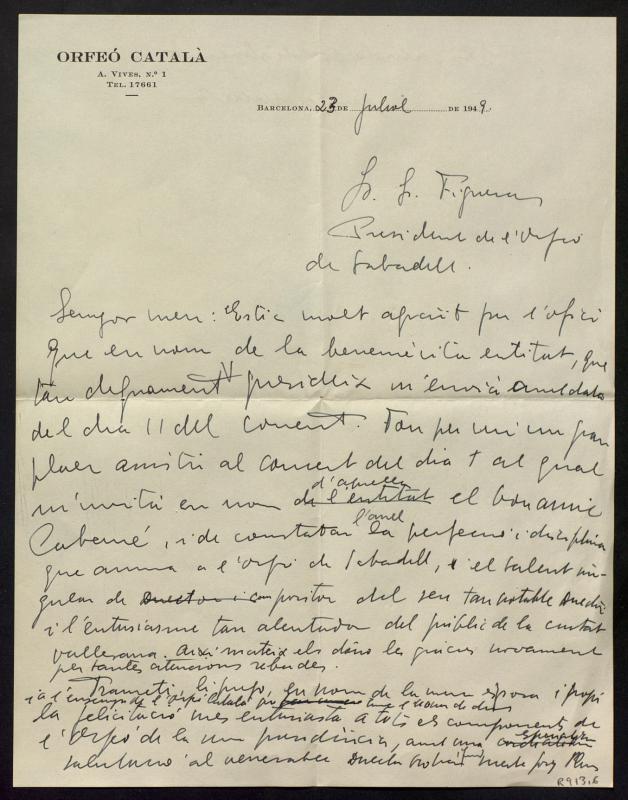 ORFEÓ CATALÀ
A. VIVES, N.º 1
TEL. 17661
BARCELONA, 23 DE juliol DE 1949.
Sr. Sr. Figueras
President de l'Orfeó
de Sabadell.
Senyor meu: Estic molt agraït per l'ofici
que en nom de la benemèrita entitat, que
tan dignament presideix m'envià amb data
del dia 11 del corrent. Fou per mi un gran
plaer assistir al concert del dia 7 al qual
m'invità en nom de l'entitat el bon amic
d'aquella
Cabané, i de constatar la perfecció i disciplina
l'anel
que anima a l'Orfeó de Sabadell, i el talent sin-
gular de Director i compositor del seu tan notable Director
i l'entusiasme tan alentador del públic de la ciutat
vallesana. Aixi mateix els dono les gràcies novament
per tantes atencions rebudes.
Trameti, li prego, en nom de la meva esposa i propi
i a l'ensems de l'Orfeó Català
la felicitació més entusiasta a tots els components de
l'Orfeó de la seva presidència, amb una cordialíssima
especial
salutació al venerable Director Mestre Josep Planas
R913,6